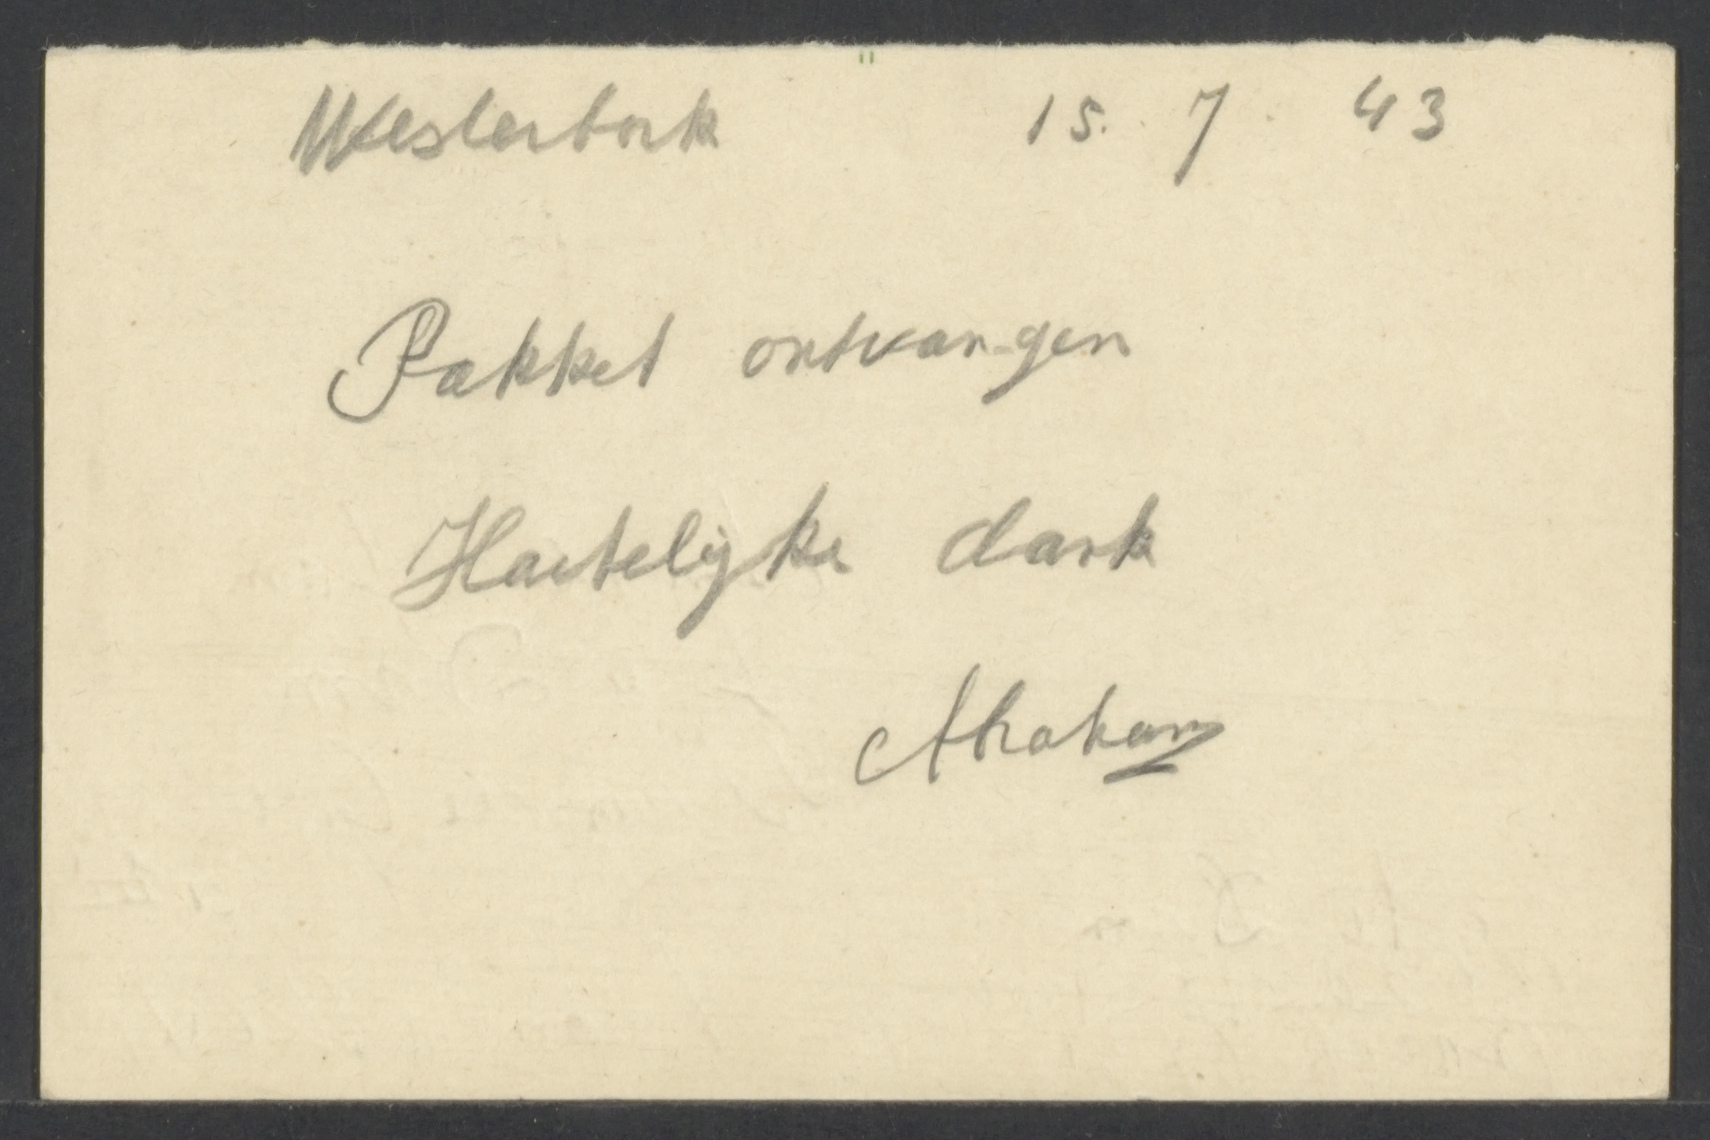 Westerbork 15. 7. 43
Pakket ontvangen
Hartelijke dank
Abraham